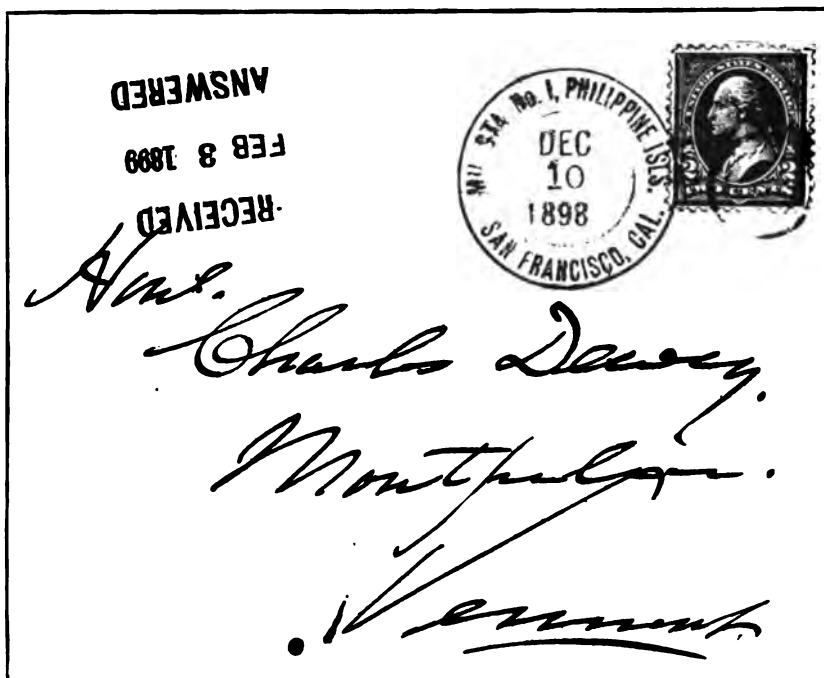 RECEIVED
FEB 3 1899
ANSWERED
MIL. STA. No. 1, PHILIPPINE ISLS.
DEC
10
1898
SAN FRANCISCO, CAL.
UNITED STATES POSTAGE
2 TWO CENTS 2
Hon.
Charles Dewey.
Montpelier.
Vermont.